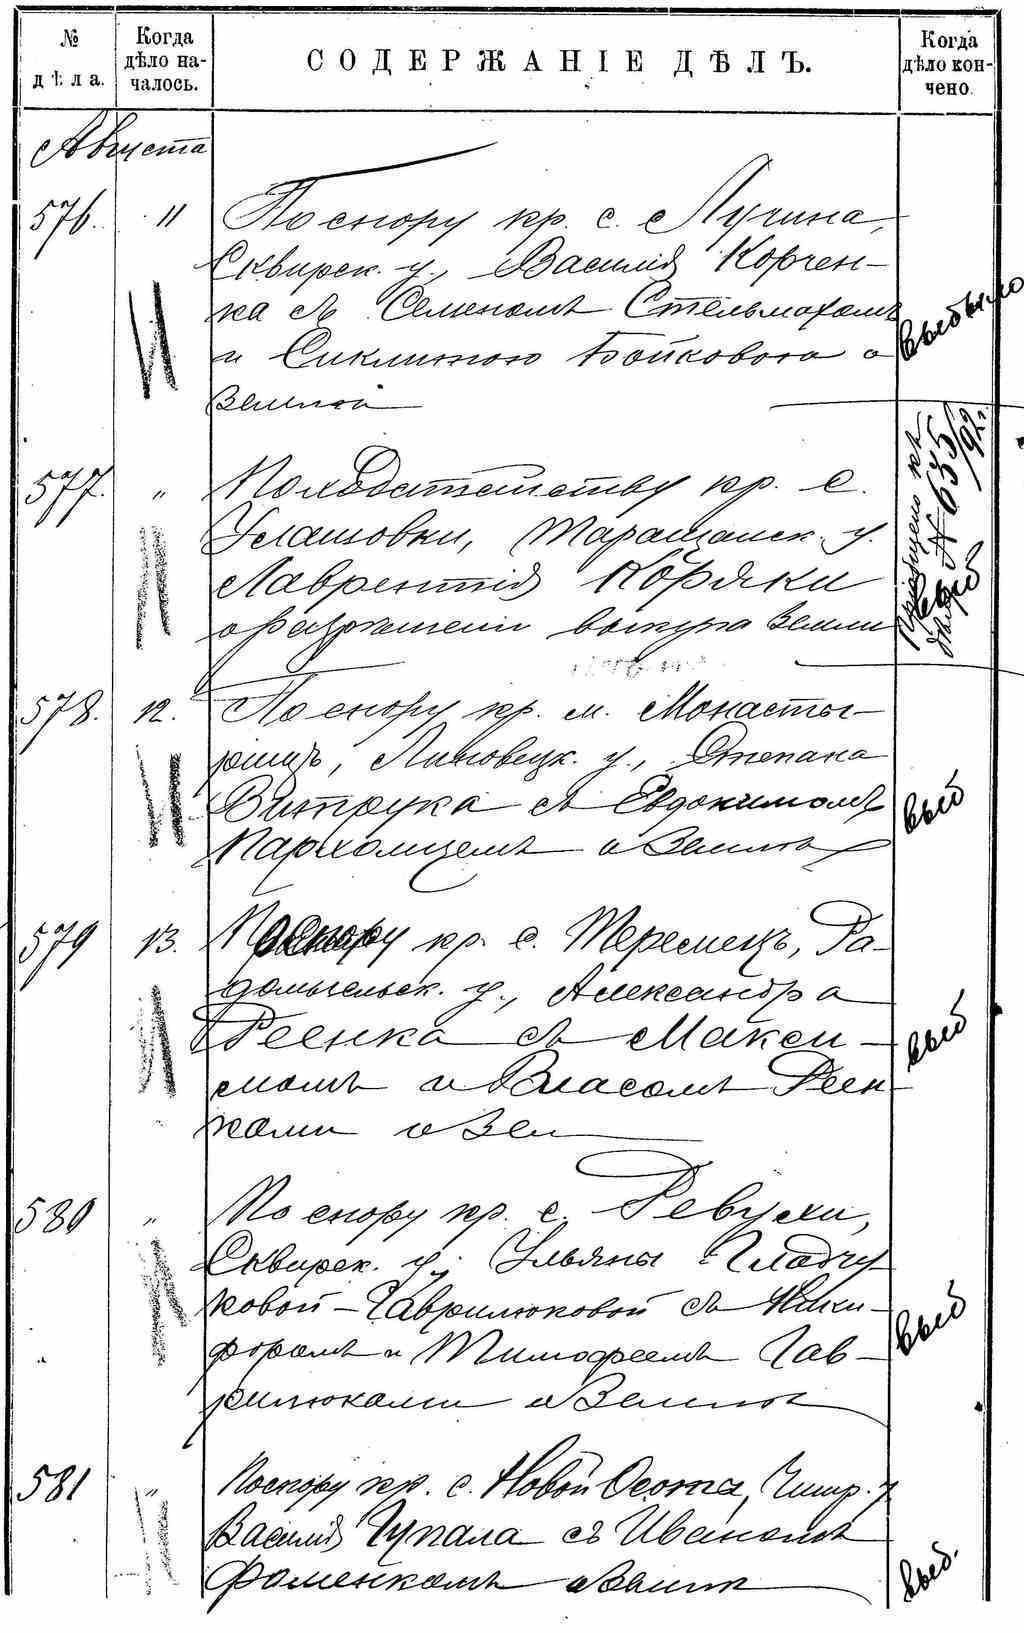 № дѣла.
Когда дѣло началось.
СОДЕРЖАНІЕ ДѢЛЪ.
Когда дѣло кончено.
Августа
576. 11 По спору кр. с. Лучина,
Сквирск. у., Василія Корчен-
ка съ Семеномъ Стельмахомъ
и Сиклитою Бойковою о
землѣ
выбыло
577. " По ходатайству кр. с.
Улашовки, Таращанск. у.
Лаврентія Коряки
о разрѣшеніи выкупа земли
Пріобщено къ
дѣлу № 635/92 г.
выб
578. 12. По спору кр. м. Монасты-
рищъ, Липовецк. у., Степана
Витрука съ Евдокимомъ
Пархомцемъ о землѣ
выб
579 13. По спору кр. с. Теремецъ, Ра-
домысльск. у., Александра
Реенка съ Макси-
момъ и Власомъ Реен-
ками о зем
выб
580 " По спору кр. с. Ревухи,
Сквирск. у. Ульяны Гладчу
ковой-Гаврилюковой съ Ники-
форомъ и Тимофеемъ Гав-
рилюками о землѣ
выб
581 " По спору кр. с. Новой Осоты, Чигир. у.
Василія Чупала съ Иваномъ
Фоменкомъ о землѣ
выб.